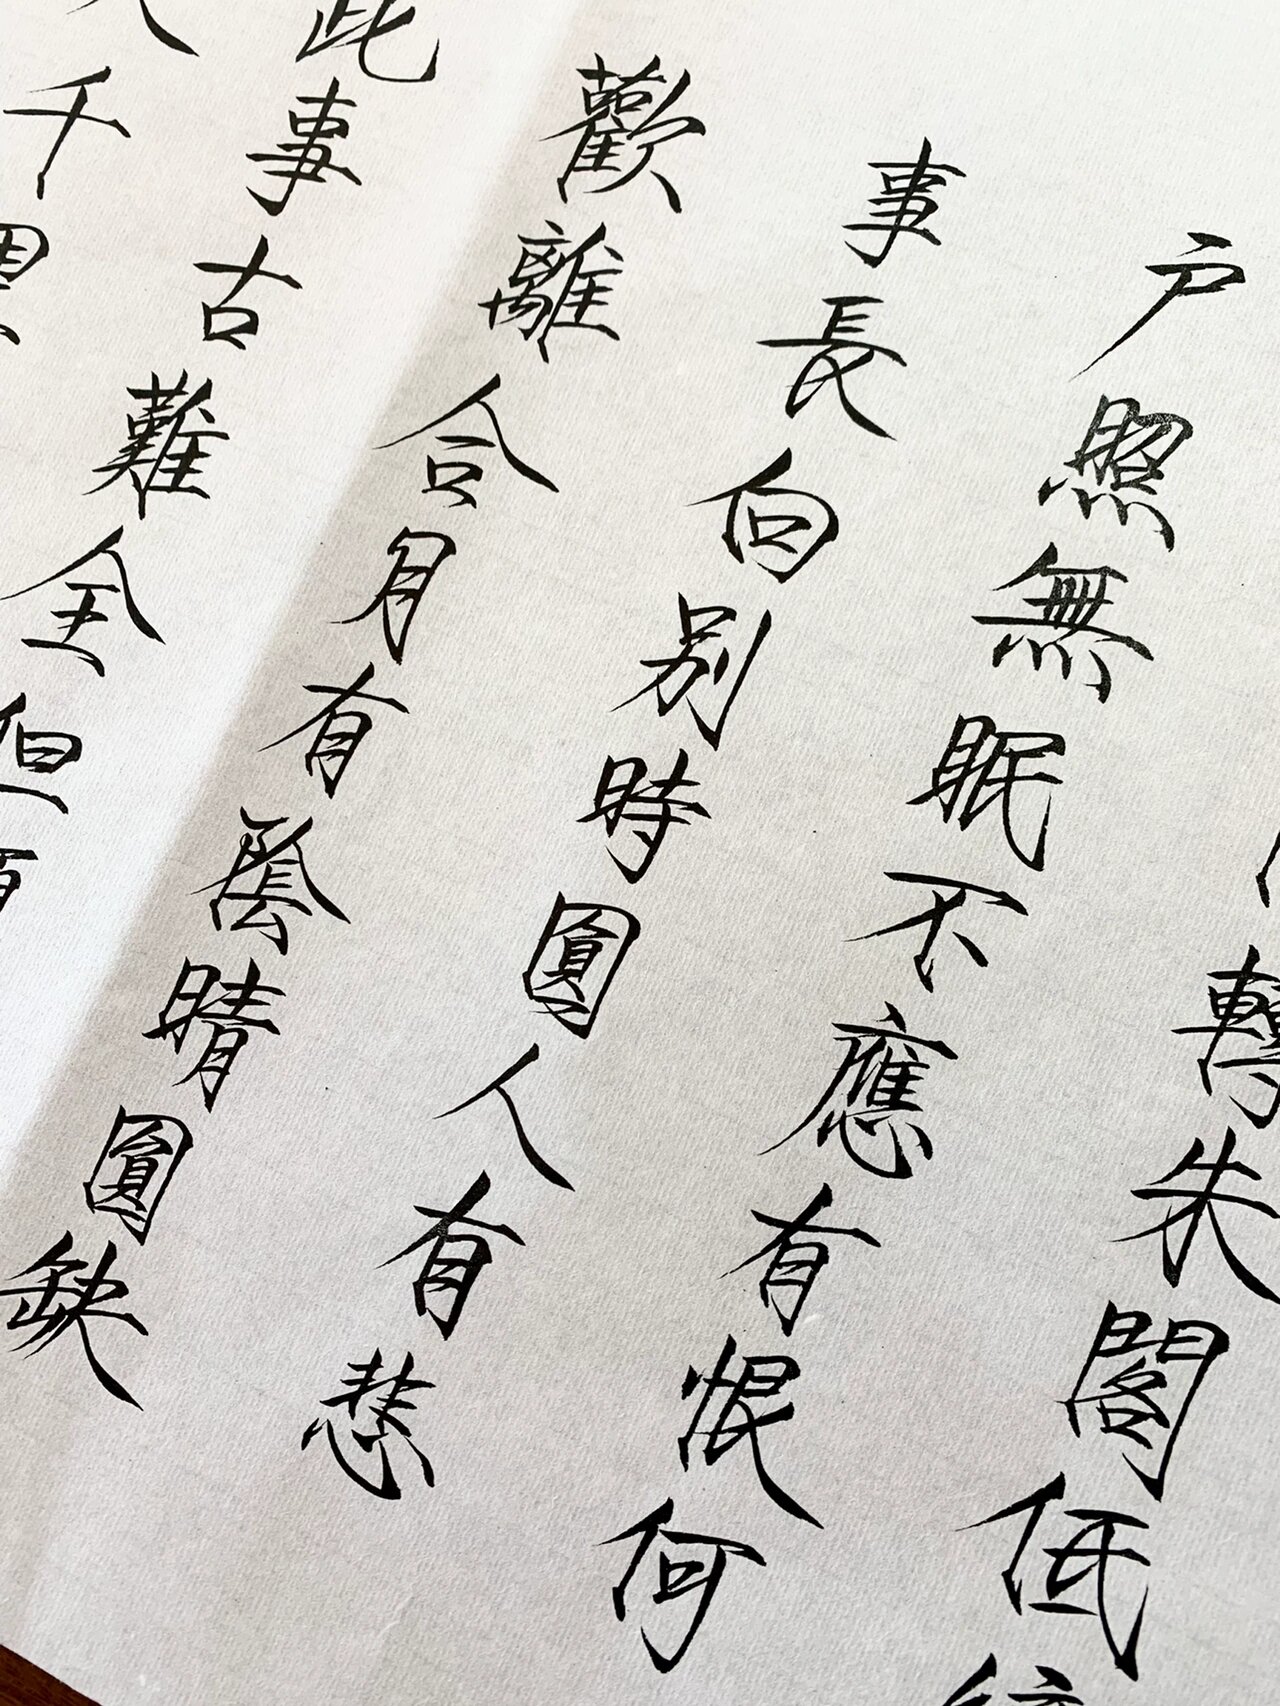 轉朱閣低
户照無眠不應有恨何
事長向別時圓人有悲
歡離合月有陰晴圓缺
此事古難全但
千里